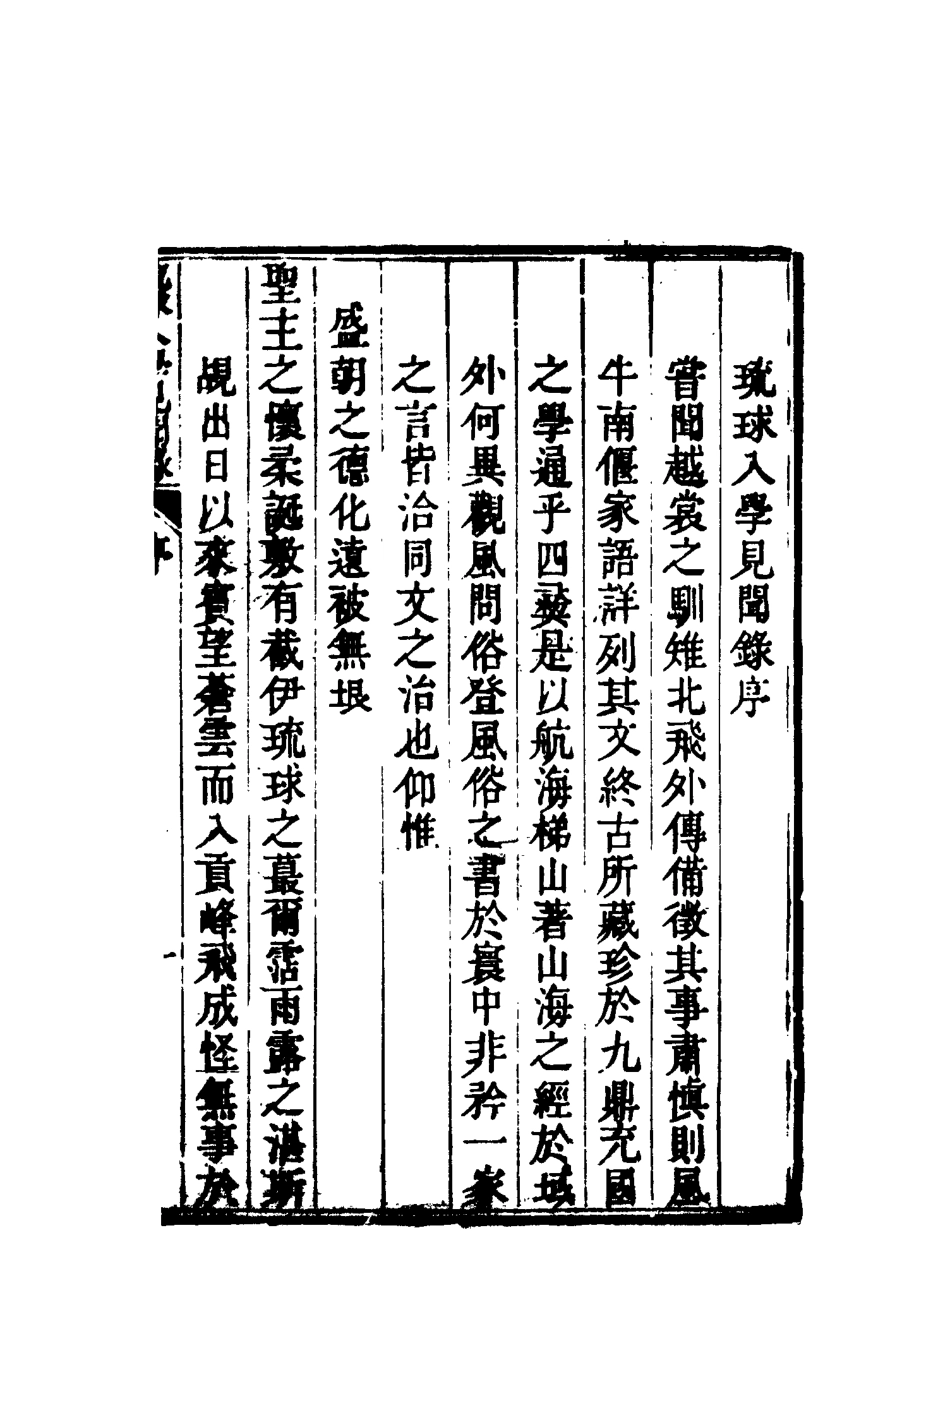 琉球入學見聞錄序
嘗聞越裳之馴雉北飛外傳備徵其事肅慎則風
牛南偃家語詳列其文終古所藏珍於九鼎充國
之學通乎四裔是以航海梯山著山海之經於域
外何異觀風問俗登風俗之書於寰中非矜一家
之言皆洽同文之治也仰惟
盛朝之德化遠被無垠
聖主之懷柔誕敷有截伊琉球之蕞爾霑雨露之湛斯
覘出日以來賓望蒼雲而入貢峰飛成怪無事於
入學見聞錄
序